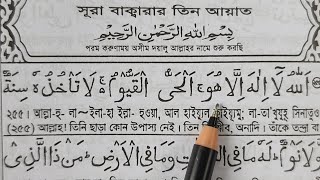 সূরা বাক্বারার তিন আয়াত
بِسْمِ اللهِ الرَّحْمٰنِ الرَّحِيْمِ
পরম করুণাময় অসীম দয়ালু আল্লাহর নামে শুরু করছি
اَللهُ لَآ اِلٰهَ اِلَّا هُوَ ۚ اَلْحَيُّ الْقَيُّوْمُ ۚ لَا تَاْخُذُهٗ سِنَةٌ
২৫৫। আল্লা-হু লা~ইলা-হা ইল্লা- হুওয়া, আল হাইয়্যুল ক্বাইয়্যূমু; লা-তা'খুযুহূ সিনাতুওঁ
(২৫৫) আল্লাহ! তিনি ছাড়া কোন উপাস্য নেই। তিনি অনাদি। তাঁকে তন্দ্রা
وَّلَا نَوْمٌ ؕ لَهٗ مَا فِي السَّمٰوٰتِ وَمَا فِي الْاَرْضِ ؕ مَنْ ذَا الَّذِيْ